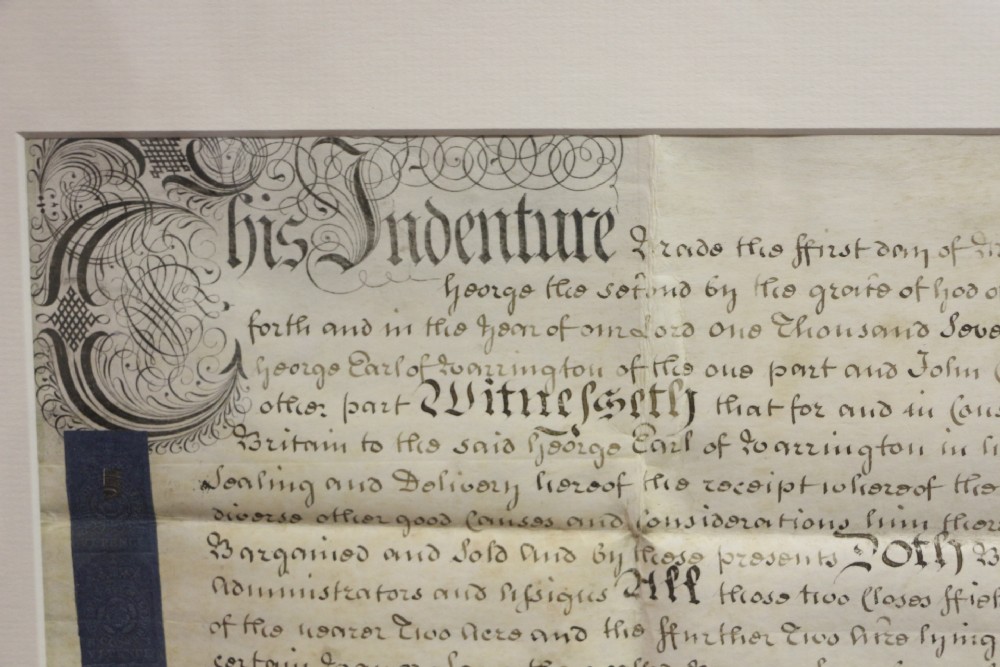 This Indenture Made the ffirst day of
George the second by the grace of God
forth and in the Year of our Lord One Thousand Seve
George Earl of Warrington of the one part and John
other part Witnesseth that for and in Cons
Britain to the said George Earl of Warrington in
Sealing and Delivery hereof the receipt whereof the
diverse other good Causes and Considerations him there
Bargained and Sold And by these presents Doth B
Administrators and Assigns All those two Closes ffiel
of the nearer Two Acre and the ffurther Two Acre lying
certain